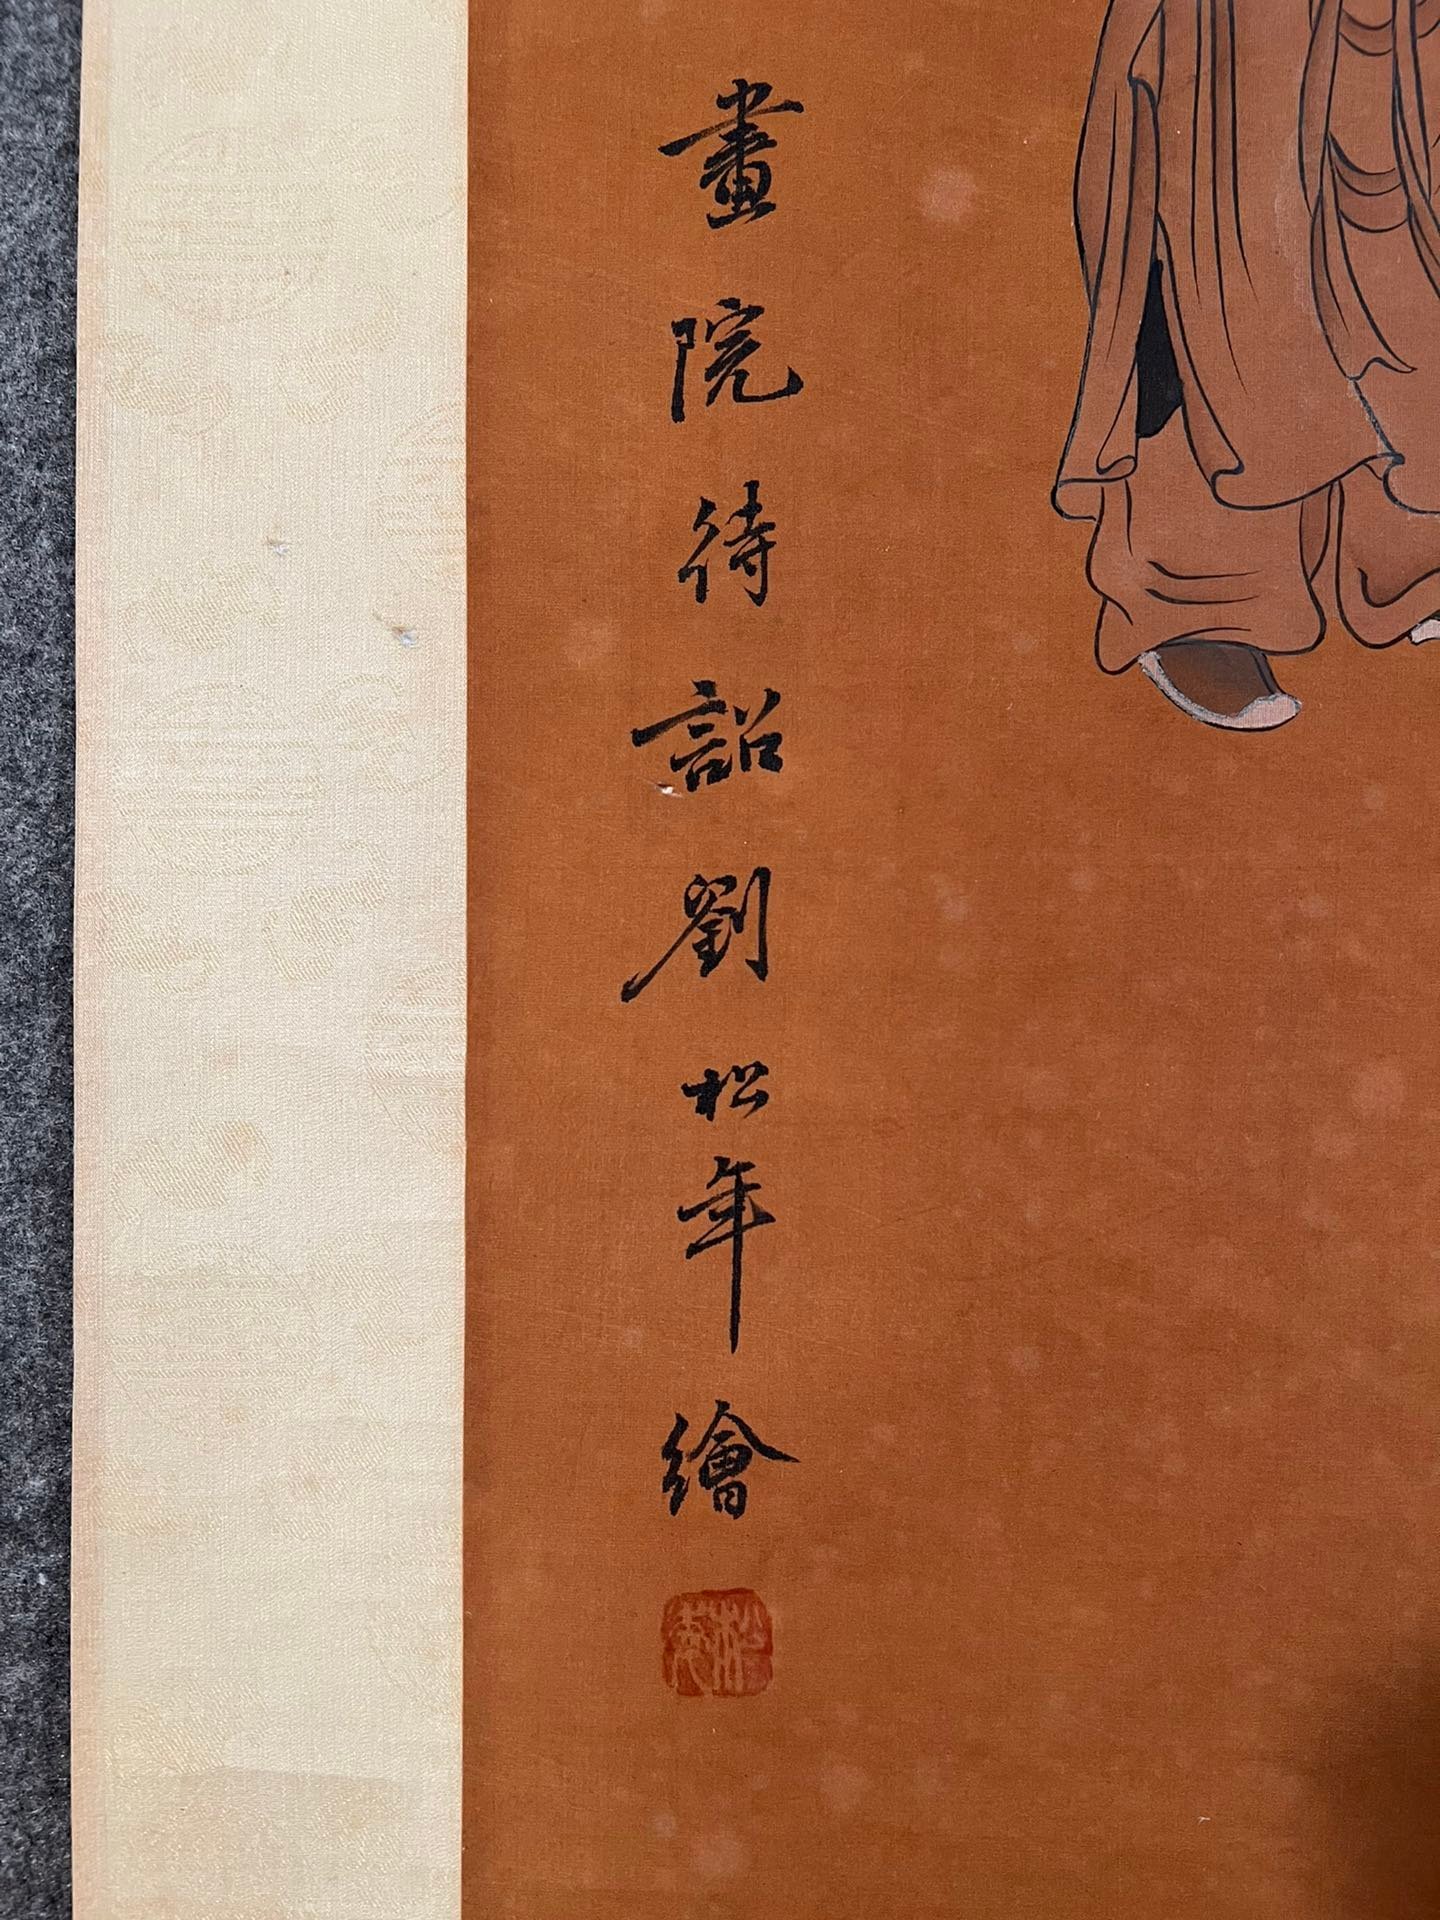 畫院待詔劉松年繪
松年